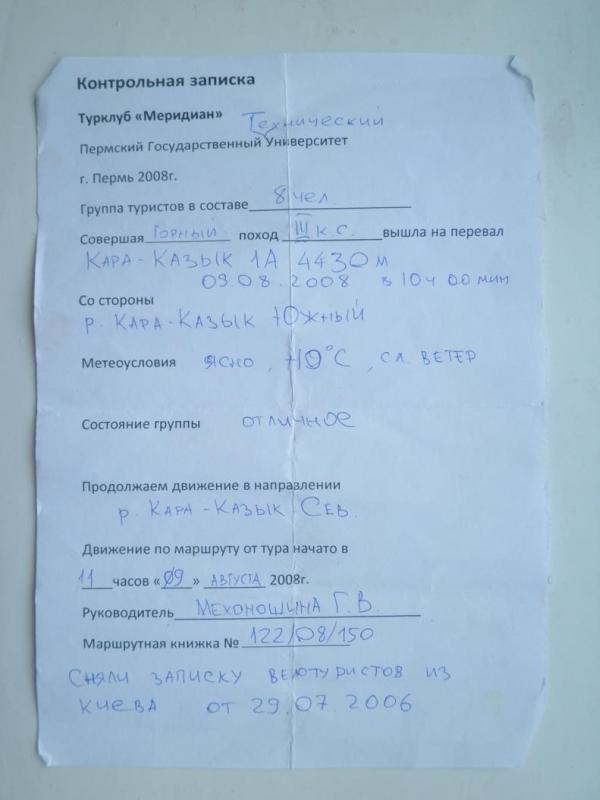 Контрольная записка
Турклуб «Меридиан» Технический
Пермский Государственный Университет
г. Пермь 2008г.
Группа туристов в составе 8 чел.
Совершая ГОРНЫЙ поход III к.с. вышла на перевал
КАРА-КАЗЫК 1А 4430 м
09.08.2008 в 10ч 00 мин
Со стороны
р. КАРА-КАЗЫК ЮЖНЫЙ
Метеоусловия ЯСНО, +10°C, СЛ. ВЕТЕР
Состояние группы ОТЛИЧНОЕ
Продолжаем движение в направлении
р. КАРА-КАЗЫК СЕВ.
Движение по маршруту от тура начато в
11 часов «09» АВГУСТА 2008г.
Руководитель МЕХОНОШИНА Г.В.
Маршрутная книжка № 122/08/150
СНЯЛИ ЗАПИСКУ ВЕЛОТУРИСТОВ ИЗ
КИЕВА ОТ 29.07.2006